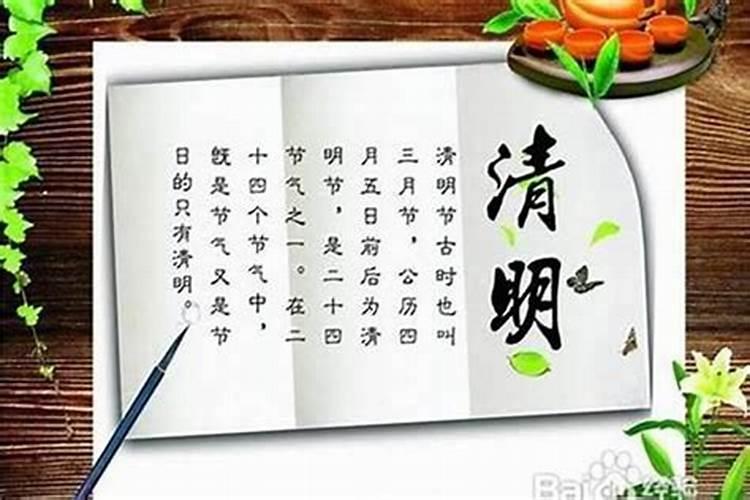 清明
清明节古时也叫
三月节，公历四
月五日前后为清
明节，是二十四
节气之一。在二
十四个节气中，
既是节气又是节
日的只有清明。
Baidu经验